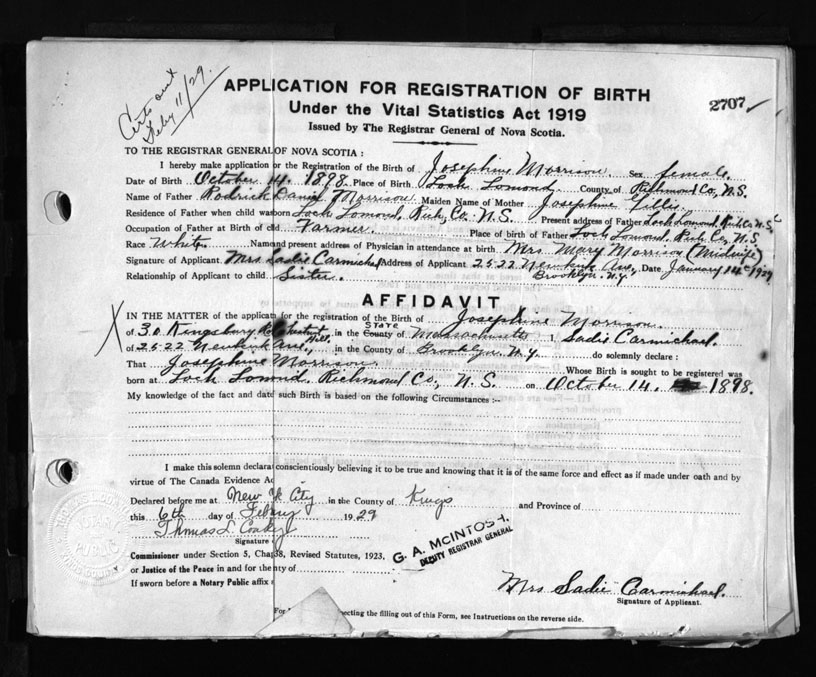 Certs out
Feby 11/29.
APPLICATION FOR REGISTRATION OF BIRTH
2707
Under the Vital Statistics Act 1919
Issued by The Registrar General of Nova Scotia.
TO THE REGISTRAR GENERAL OF NOVA SCOTIA :
I hereby make application for the Registration of the Birth of Josephine Morrison Sex female.
Date of Birth October 14. 1898. Place of Birth Loch Lomond County of Richmond Co, N.S.
Name of Father Rodrick Daniel Morrison Maiden Name of Mother Josephine Gillis
Residence of Father when child was born Loch Lomond, Rich. Co, N.S. Present address of Father Loch Lomond, Rich Co N.S.
Occupation of Father at Birth of child Farmer. Place of birth of Father Loch Lomond, Rich. Co, N.S.
Race White Name and present address of Physician in attendance at birth Mrs. Mary Morrison (Midwife)
Signature of Applicant. Mrs Sadie Carmichael Address of Applicant 2522 Newkirk Ave, Date January 14th 1929
Relationship of Applicant to child Sister. Brooklyn. N.Y.
AFFIDAVIT
IN THE MATTER of the application for the registration of the Birth of Josephine Morrison.
of 30 Kingsbury Rd Chestnut Hill, in the County State of Massachusetts I Sadie Carmichael.
of 2522 Newkirk Ave., in the County of Brooklyn. N.Y. do solemnly declare :
That Josephine Morrison. Whose Birth is sought to be registered was
born at Loch Lomond, Richmond Co, N.S. on October 14. 1898.
My knowledge of the fact and date such Birth is based on the following Circumstances :-
I make this solemn declara conscientiously believing it to be true and knowing that it is of the same force and effect as if made under oath and by
virtue of The Canada Evidence Ac
Declared before me at New Y City in the County of Kings and Province of
this 6th day of Febuary 1929
Thomas L. Coakey
Signature
G. A. McINTOSH,
DEPUTY REGISTRAR GENERAL
Commissioner under Section 5, Chap 38, Revised Statutes, 1923,
or Justice of the Peace in and for the nty of
If sworn before a Notary Public affix
Mrs Sadie Carmichael.
Signature of Applicant.
For In ecting the filling out of this Form, see Instructions on the reverse side.